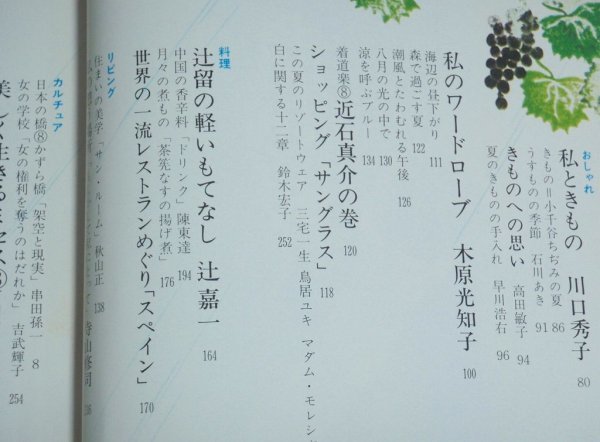 おしゃれ
私ときもの 川口秀子 80
きもの=小千谷ちぢみの夏 86
うすものの季節 石川あき 91
きものへの思い 高田敏子 94
夏のきものの手入れ 早川浩右 96
私のワードローブ 木原光知子 100
海辺の昼下がり 111
森で過ごす夏 122
潮風とたわむれる午後 126
八月の光の中で 130
涼を呼ぶブルー 134
着道楽⑧近石真介の巻 120
ショッピング「サングラス」 118
この夏のリゾートウェア 三宅一生 鳥居ユキ マダム・モレシャ
白に関する十二章 鈴木宏子 252
料理
辻留の軽いもてなし 辻嘉一 164
中国の香辛料「ドリンク」 陳東達 194
月々の煮もの「茶筅なすの揚げ煮」 176
世界の一流レストランめぐり「スペイン」 170
リビング
住まいの美学「サン・ルーム」 秋山正 138
寺山修司
カルチュア
日本の橋⑧かずら橋「架空と現実」 串田孫一 8
女の学校「女の権利を奪うのはだれか」 吉武輝子 254